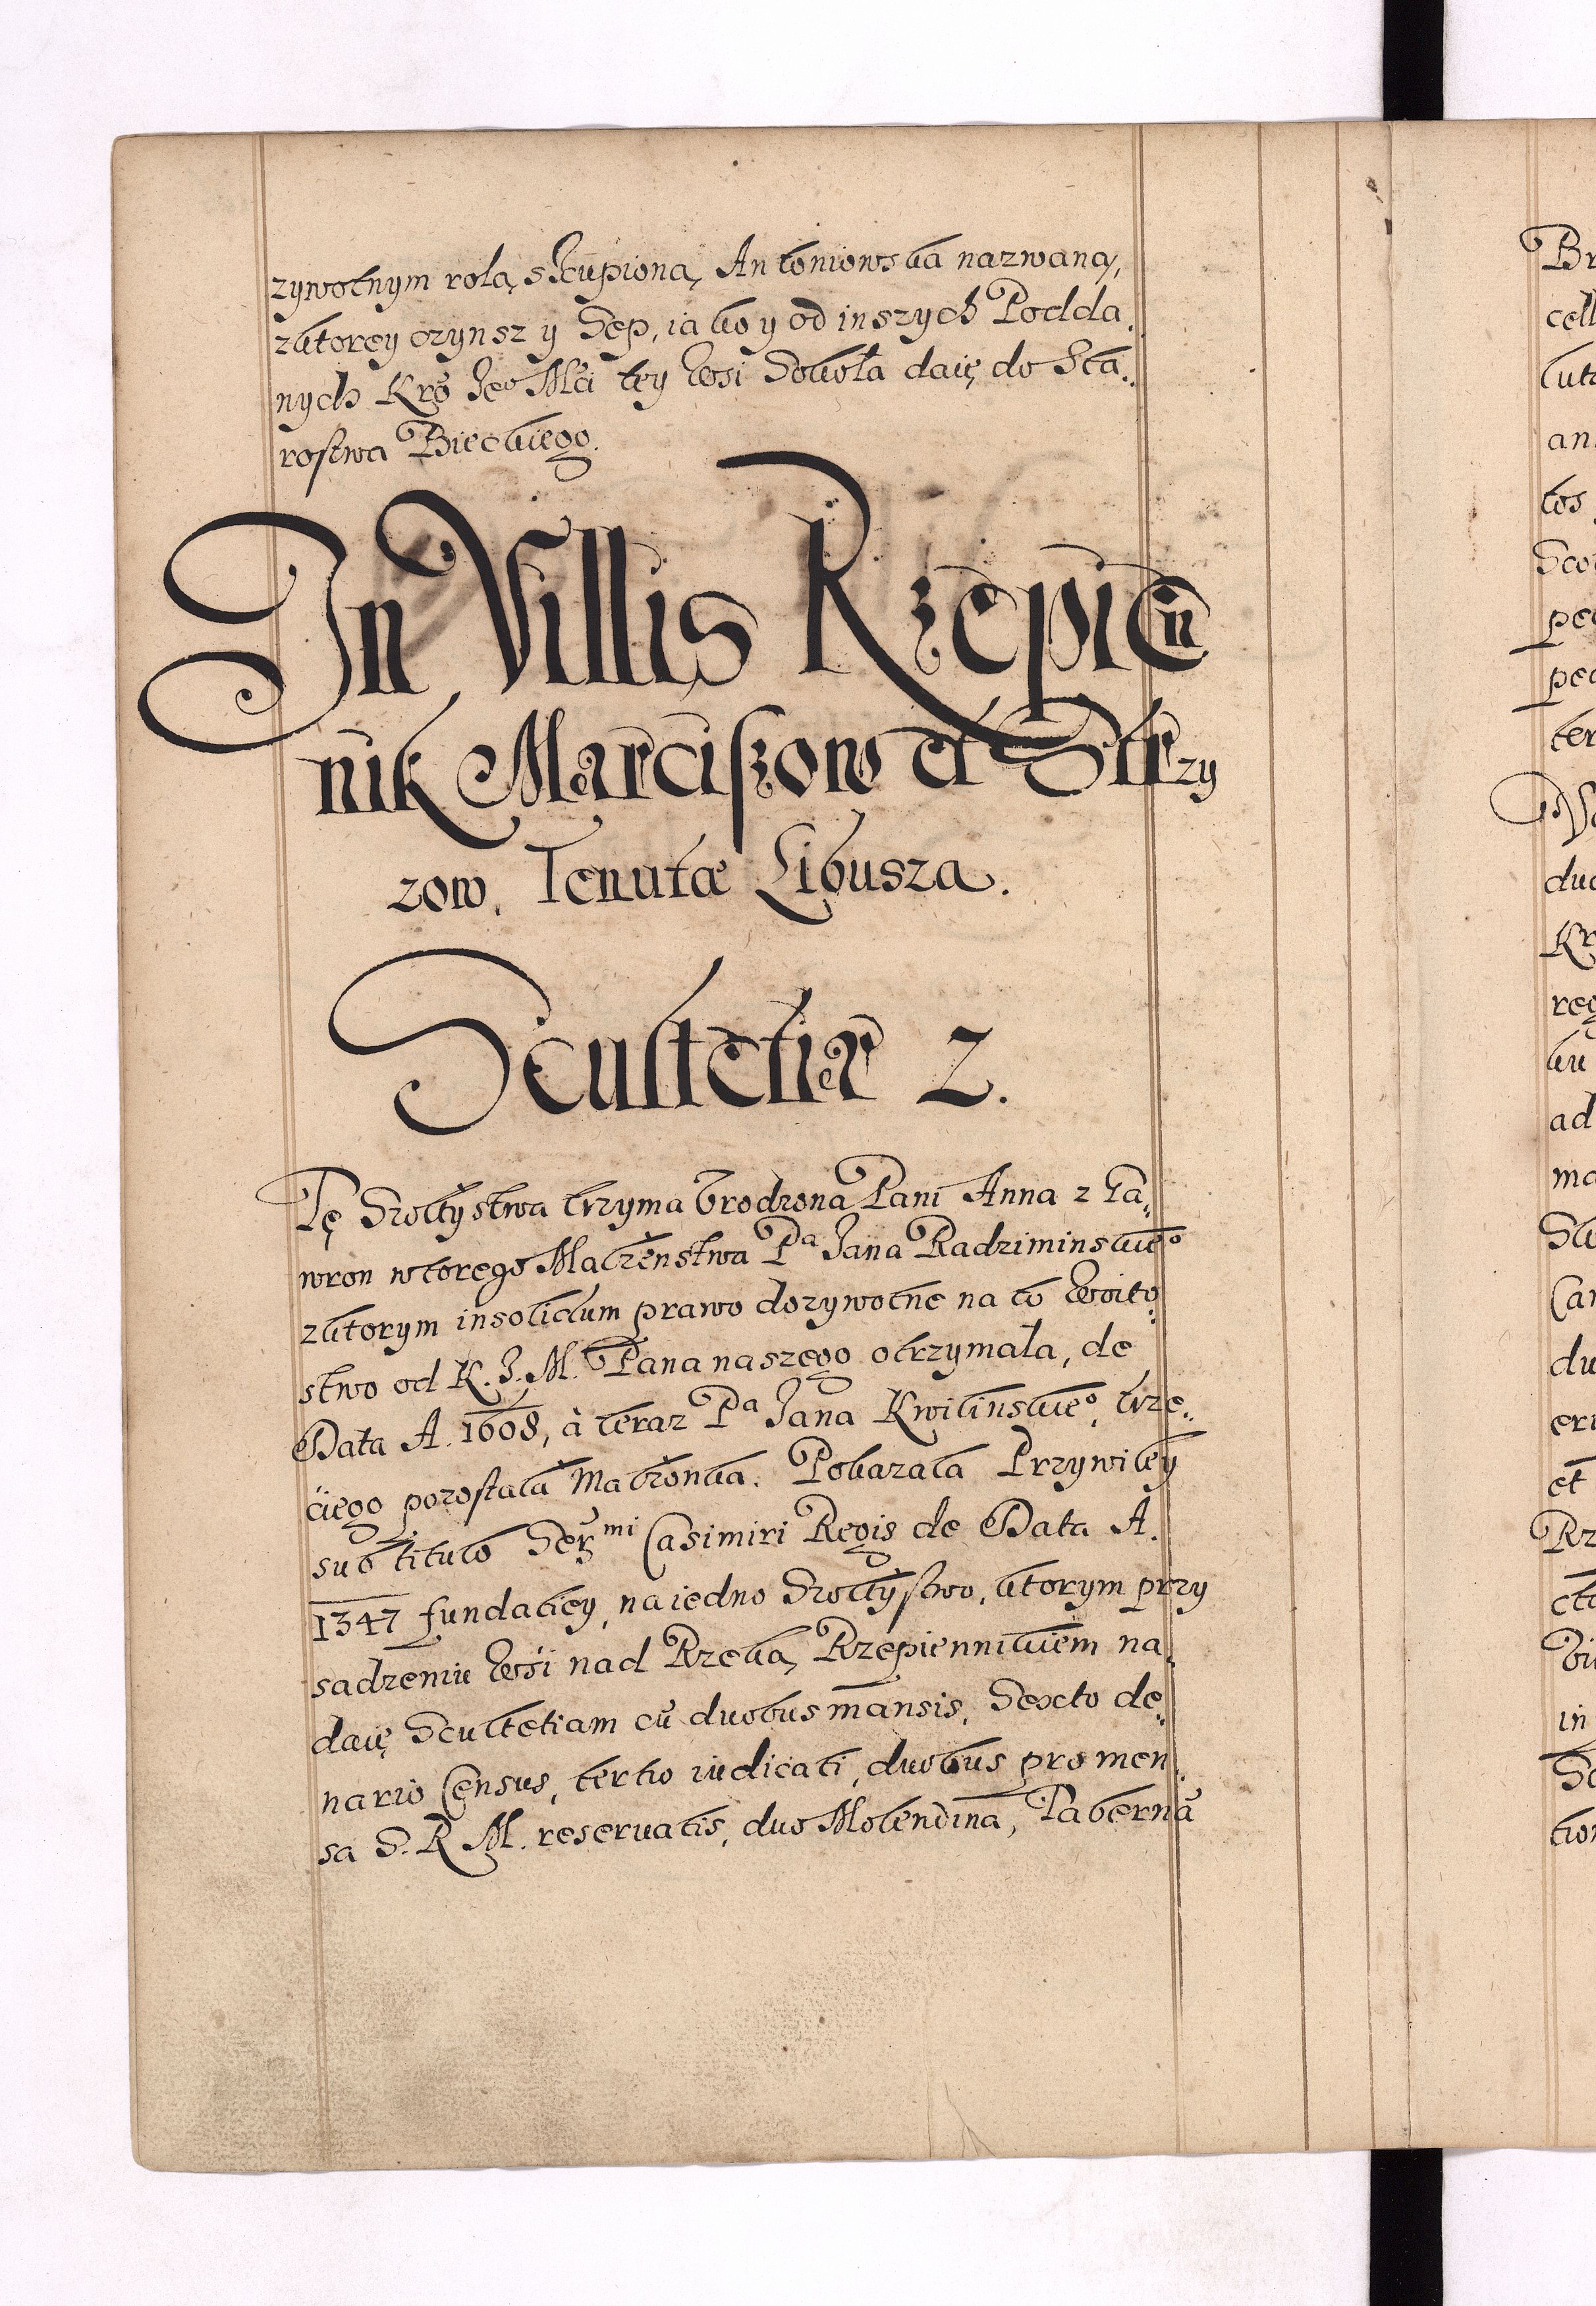 zywotnym rolą skupioną, Antoniowska nazwaną,
zktorey czynsz y Sep, iako y od inszych Podda,
nych Kro Jeo Mci tey Wsi Sokoła daię do Sta..
rostwa Bieckiego.
In Villis Rzepien
nik Marciszow et Strzy
zow. Tenutæ Libusza.
Scultetiæ 2.
Tę Szołtystwa trzyma Vrodzona Pani Anna z Ja„
wron wtorego Małżenstwa Pa Jana Radziminskieo
zktorym insolidum prawo dozywotne na to Woito„
stwo od K. J. M. Pana naszego otrzymała, de
Data A. 1608, à teraz Pa Jana Kwilinskieo, trze„
ciego pozostała Małżonka. Pokazała Przywiley
sub titulo Sermi Casimiri Regis de Data A.
1347 fundatiey, na iedno Szołtystwo, ktorym przy
sadzeniu Wsi nad Rzeką, Rzepiennikiem na„
daię Scultetiam cũ duobus mansis, Sexto de„
nario Census, tertio iudicati, duobus pro men„
sa S. R M. reseruatis, duo Molendina, Tabernã
Br
cell
lut
an
tos
Sco
pe
pe
ter
duo
Kr
reg
ku
ad
ma
Sw
Can
du
eri
et
Rz
cta
in
Sc
tio